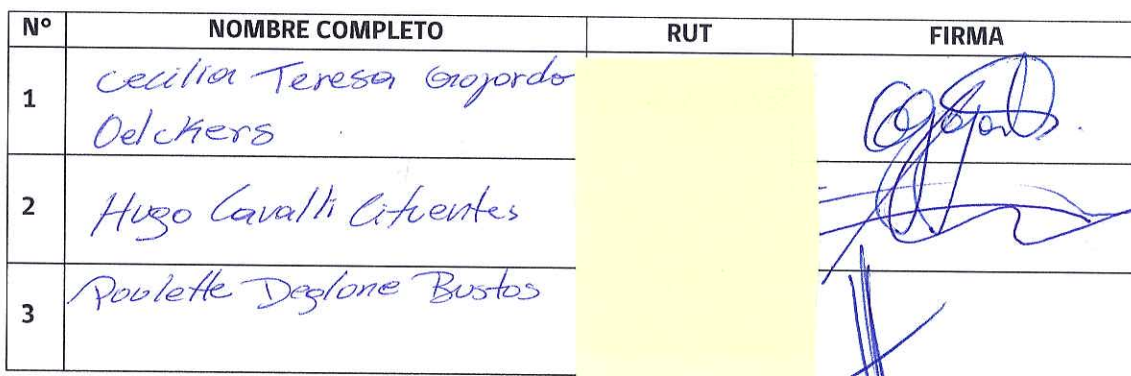 N° NOMBRE COMPLETO RUT FIRMA
1 Cecilia Teresa Gajardo
Oelckers
2 Hugo Cavalli Cifuentes
3 Poulette Deglone Bustos